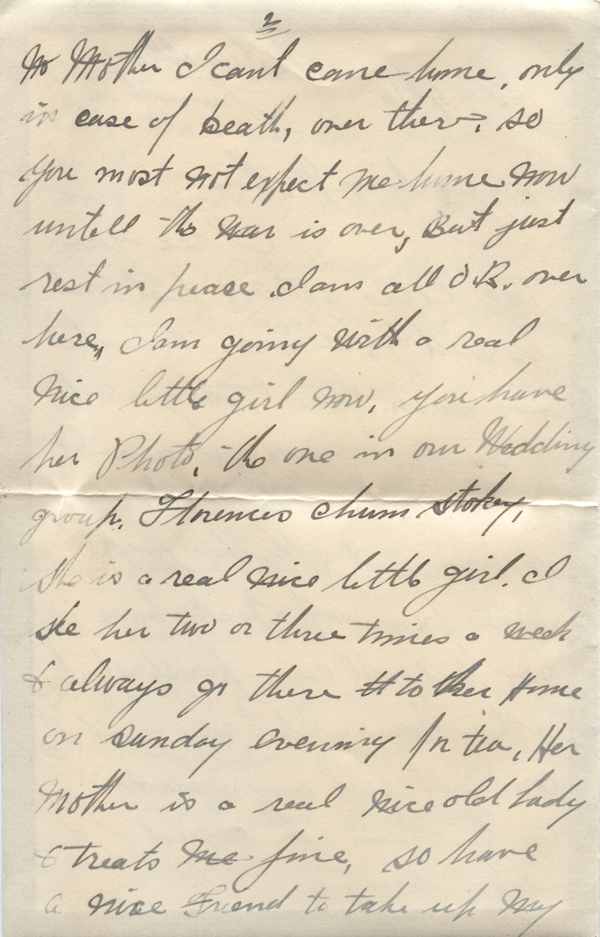 2
No Mother I cant come home, only
in case of Death, over there, so
you most not expect me home now
untell the War is over, But just
rest in peace I am all O.K. over
here,, I am going with a real
nice little girl now, you have
her Photo, the one in our Wedding
group. Florences chum stokey,
She is a real nice little girl. I
see her two or three times a week
& always go there to her Home
on sunday evening for tea, Her
Mother is a real nice old lady
& treats me fine, so have
a nice Friend to take up my